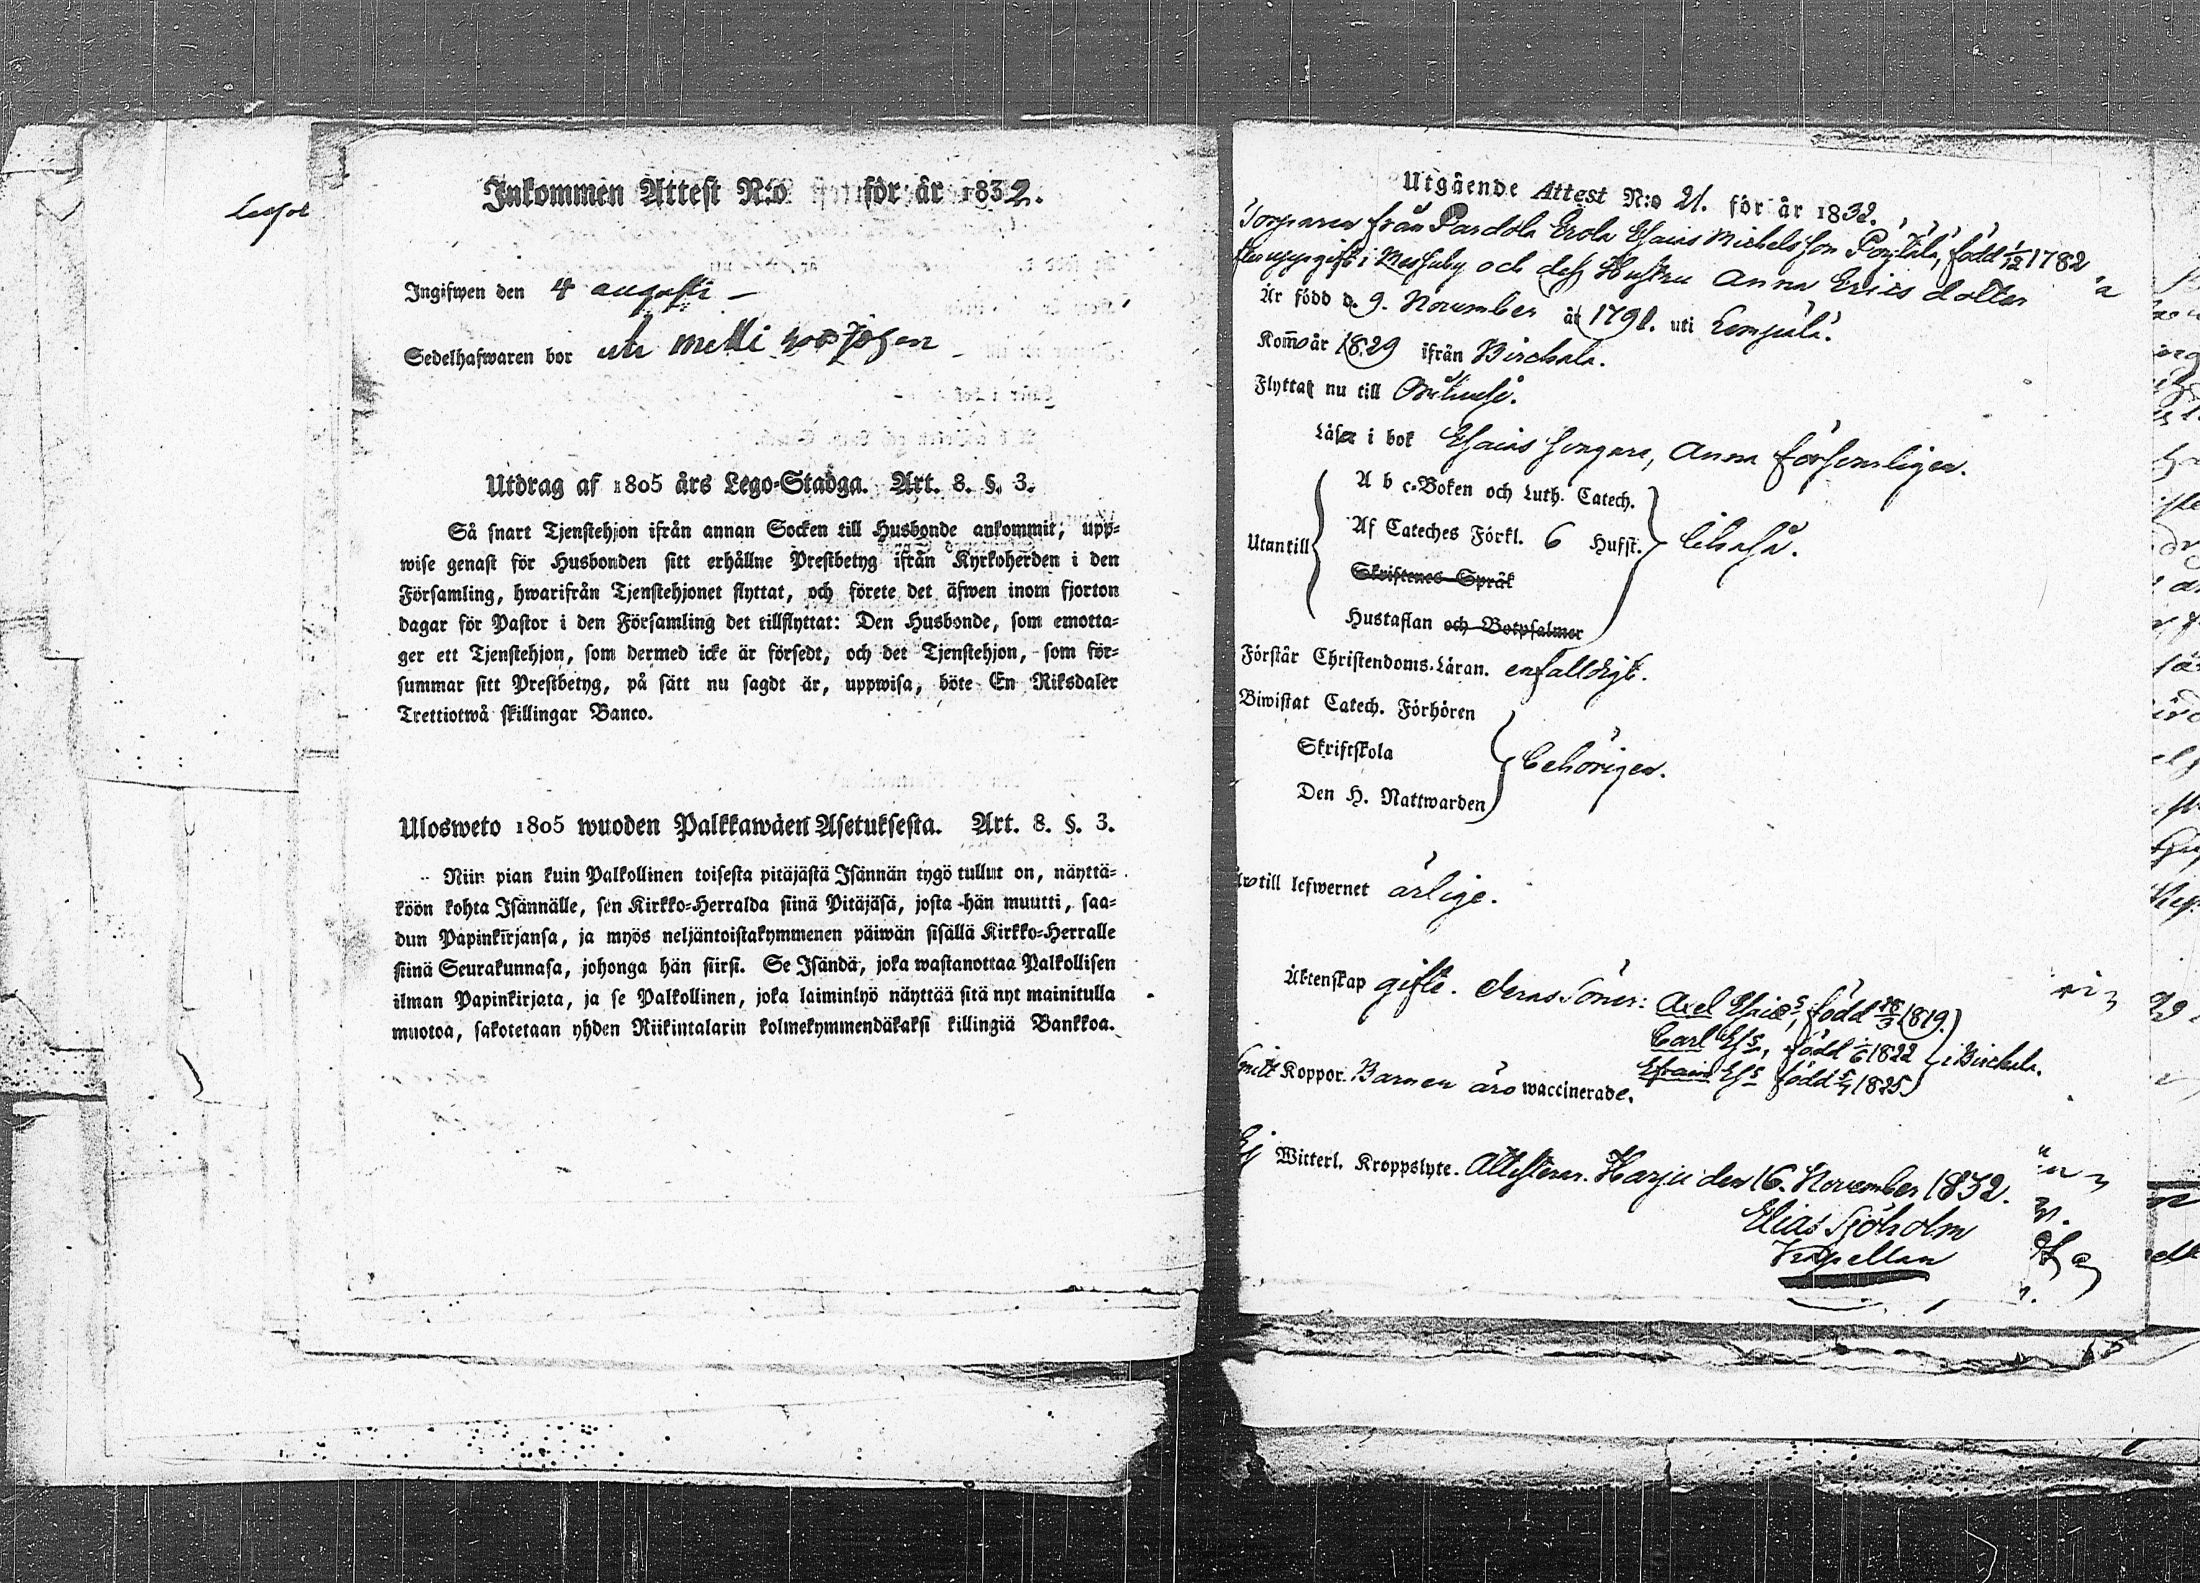 Inkommen Attest N:o för år 1832.
Ingifwen den 4 augusti –
Sedelhafwaren bor
Utdrag af 1805 års Lego-Stadga. Art. 8. §. 3.
Så snart Tjenstehjon ifrån annan Socken till Husbonde ankommit, upp-
wise genast för Husbonden sitt erhållne Prestbetyg ifrån Kyrkoherden i den
Församling, hwarifrån Tjenstehjonet flyttat, och förete det äfwen inom fjorton
dagar för Pastor i den Församling det tillflyttat: Den Husbonde, som emotta-
ger ett Tjenstehjon, som dermed icke är försedt, och det Tjenstehjon, som för-
summar sitt Prestbetyg, på sätt nu sagdt är, uppwisa, böte En Riksdaler
Trettiotwå skillingar Banco.
Ulosweto 1805 wuoden Palkkawäen Asetuksesta. Art. 8. §. 3.
Niin pian kuin Palkollinen toisesta pitäjästä Isännän tygö tullut on, näyttä-
köön kohta Isännälle, sen Kirkko-Herralda siinä Pitäjäsä, josta hän muutti, saa-
dun Papinkirjansa, ja myös neljäntoistakymmenen päiwän sisällä Kirkko-Herralle
siinä Seurakunnasa, johonga hän siirsi. Se Isändä, joka wastanottaa Palkollisen
ilman Papinkirjata, ja se Palkollinen, joka laiminlyö näyttää sitä nyt mainitulla
muotoa, sakotetaan yhden Riikintalarin kolmekymmendäkaksi killingiä Bankkoa.
Utgående Attest N:o 21. för år 1832.
Torparen från Pardola Erola Esaias Michelsson född 1/12 1782
i Messuby och dess Hustru Anna Ericsdotter
Är född d. 9. November år 1791. uti Lempälä.
Kom̄o år 1829 ifrån Birckala.
Flyttat nu till
Läser i bok Esaias svagare, Anna försvarligen.
A b c-Boken och Luth. Catech.
Utantill Af Cateches Förkl. 6 Hufst.
Skriftenes Språk
Hustaflan och Botpsalmer
Förstår Christendoms-Läran. enfaldigt.
Biwistat Catech. Förhören
Skriftskola behörigen.
Den H. Nattwarden
Äro till lefwernet ärlige.
Äktenskap gifte. deras Söner: Axel Esais, född 18/3 1819.
Carl Es, född 1/6 1822 i Birckala.
Efraim Es född 5/7 1825
haft Koppor. Barnen äro waccinerade.
Ej Witterl. Kroppslyte. Attesterar. Harju den 16. November 1832.
Elias Sjöholm
Kapellan